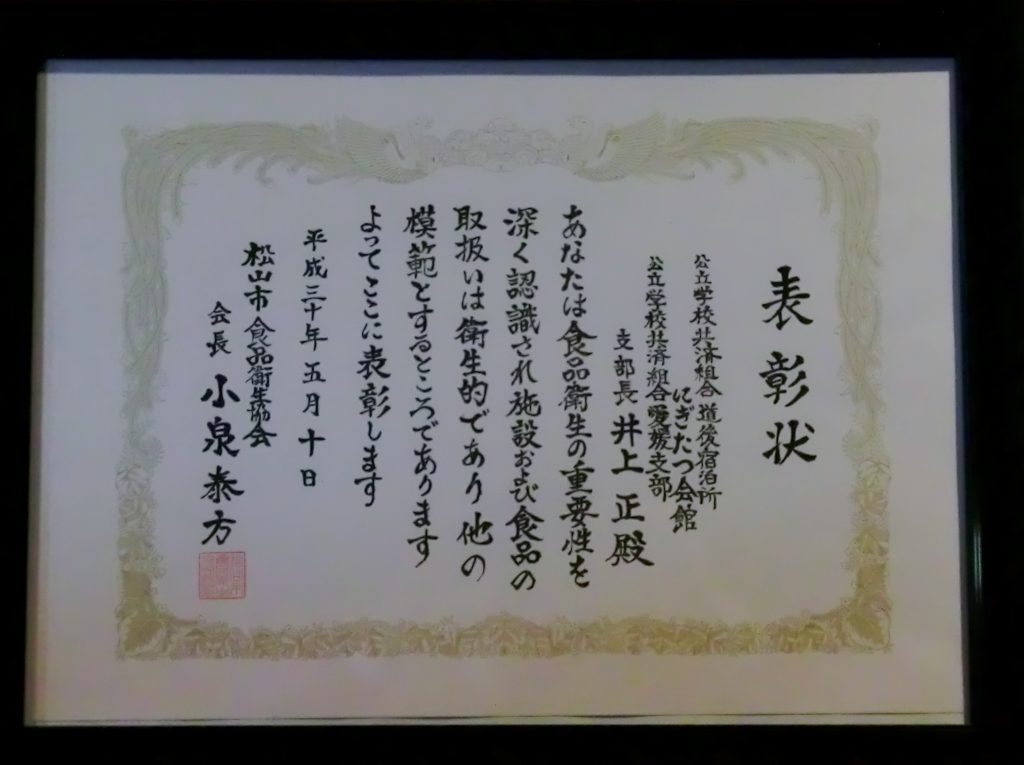 表彰状
公立学校共済組合 道後宿泊所
にぎたつ会館
公立学校共済組合愛媛支部
支部長 井上 正殿
あなたは食品衛生の重要性を
深く認識され施設および食品の
取扱いは衛生的であり他の
模範とするところであります
よってここに表彰します
平成三十年五月十日
松山市食品衛生協会
会長 小泉泰方